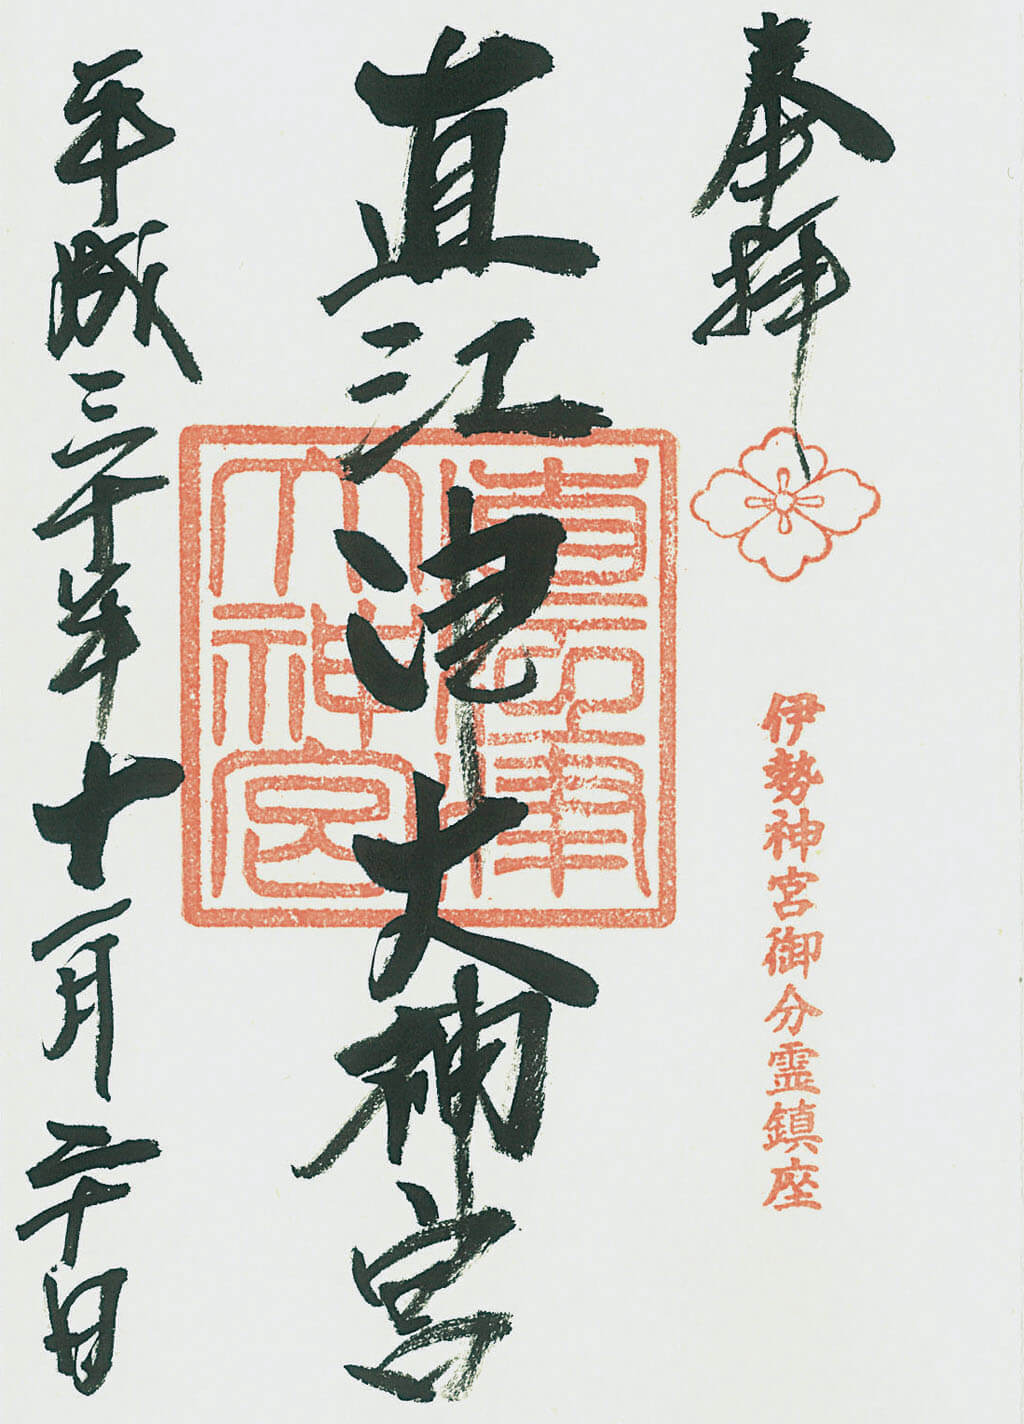 奉拝
伊勢神宮御分霊鎮座
直江津大神宮
直江津
大神宮
平成三十年十一月二十日